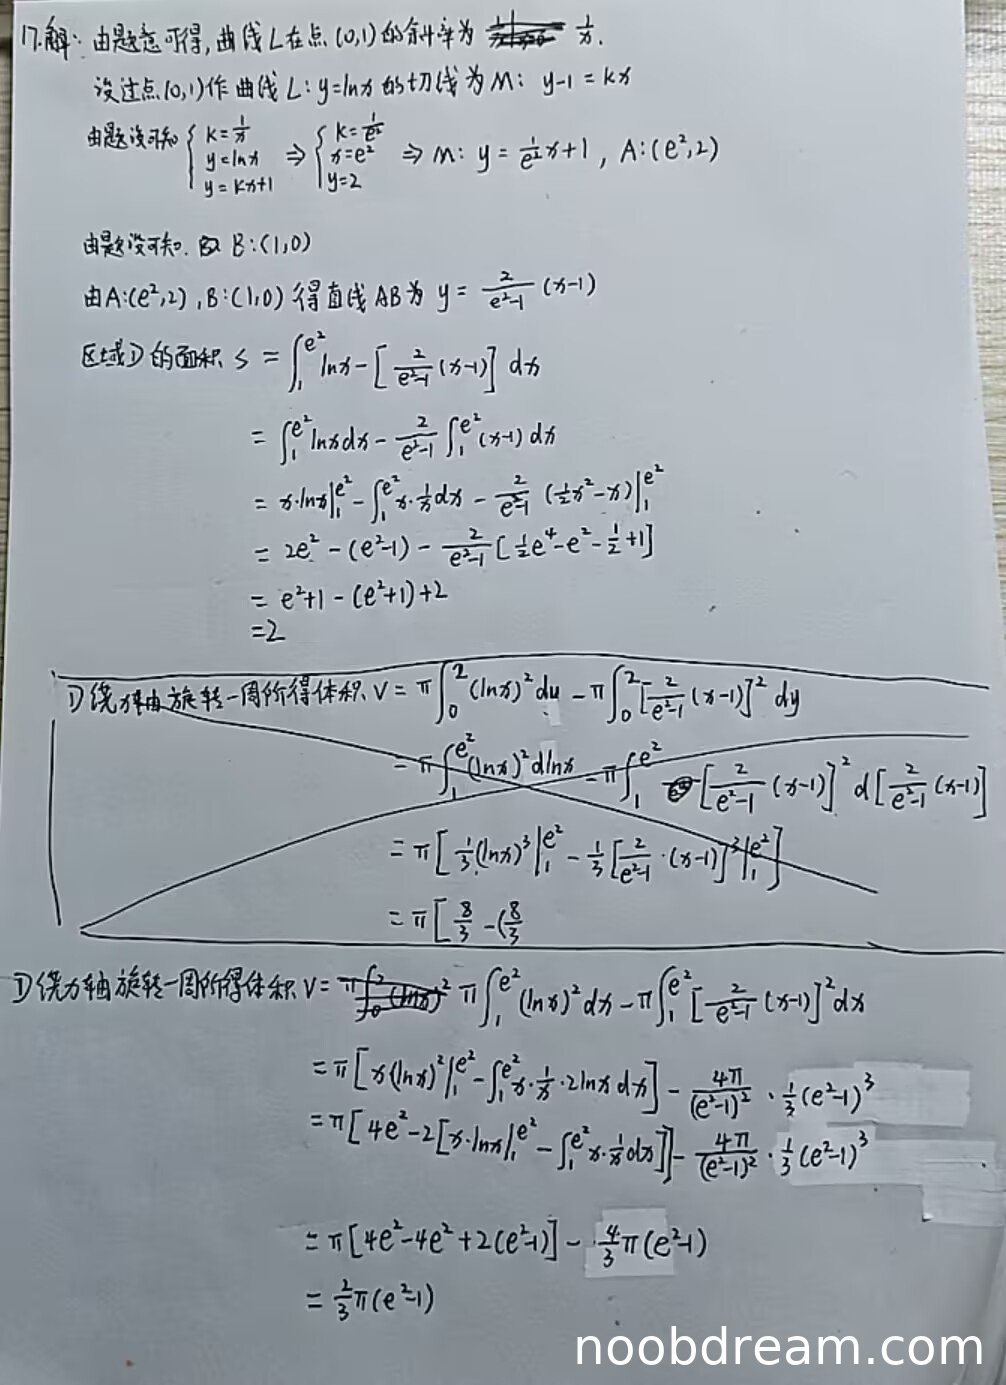 17.解：由题意可得，曲线L在点(0,1)的斜率为 1/x.
设过点(0,1)作曲线L：y=lnx的切线为M：y-1=kx
由题设可知 { k=1/x, y=lnx, y=kx+1 ⇒ { k=1/e², x=e², y=2 ⇒ M：y=1/e² x+1，A：(e²,2)
由题设可知. B：(1,0)
由A：(e²,2)，B：(1,0)得直线AB为 y = 2/(e²-1) (x-1)
区域D的面积 S = ∫₁^{e²} lnx - [2/(e²-1) (x-1)] dx
= ∫₁^{e²} lnxdx - 2/(e²-1) ∫₁^{e²} (x-1) dx
= x·lnx|₁^{e²} - ∫₁^{e²} x·1/x dx - 2/(e²-1) (1/2x²-x)|₁^{e²}
= 2e² - (e²-1) - 2/(e²-1) [1/2e⁴-e²-1/2+1]
= e²+1 - (e²+1)+2
=2
D绕x轴旋转一周所得体积 V = π∫₀² (lnx)² dy - π∫₀² [2/(e²-1) (x-1)]² dy
= π∫₁^{e²} (lnx)² dlnx - π∫₁^{e²} [2/(e²-1) (x-1)]² d[2/(e²-1) (x-1)]
= π[1/3(lnx)³|₁^{e²} - 1/3[2/(e²-1)·(x-1)]³|₁^{e²}]
= π[8/3 -(8/3
D绕x轴旋转一周所得体积 V= π∫₁^{e²} (lnx)² dx - π∫₁^{e²} [2/(e²-1) (x-1)]² dx
= π[x(lnx)²|₁^{e²} - ∫₁^{e²} x·1/x·2lnx dx] - 4π/(e²-1)² · 1/3(e²-1)³
= π[4e²-2[x·lnx|₁^{e²} - ∫₁^{e²} x·1/x dx]] - 4π/(e²-1)² · 1/3(e²-1)³
= π[4e²-4e²+2(e²-1)] - 4/3π(e²-1)
= 2/3π(e²-1)
noobdream.com